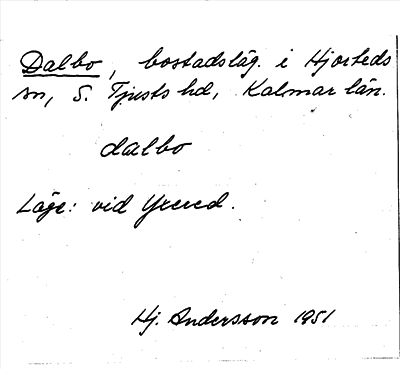 Dalbo, bostadsläg. i Hjorteds
sn, S. Tjusts hd, Kalmar län.
dalbo
Läge: vid Yxered.
Hj. Andersson 1951